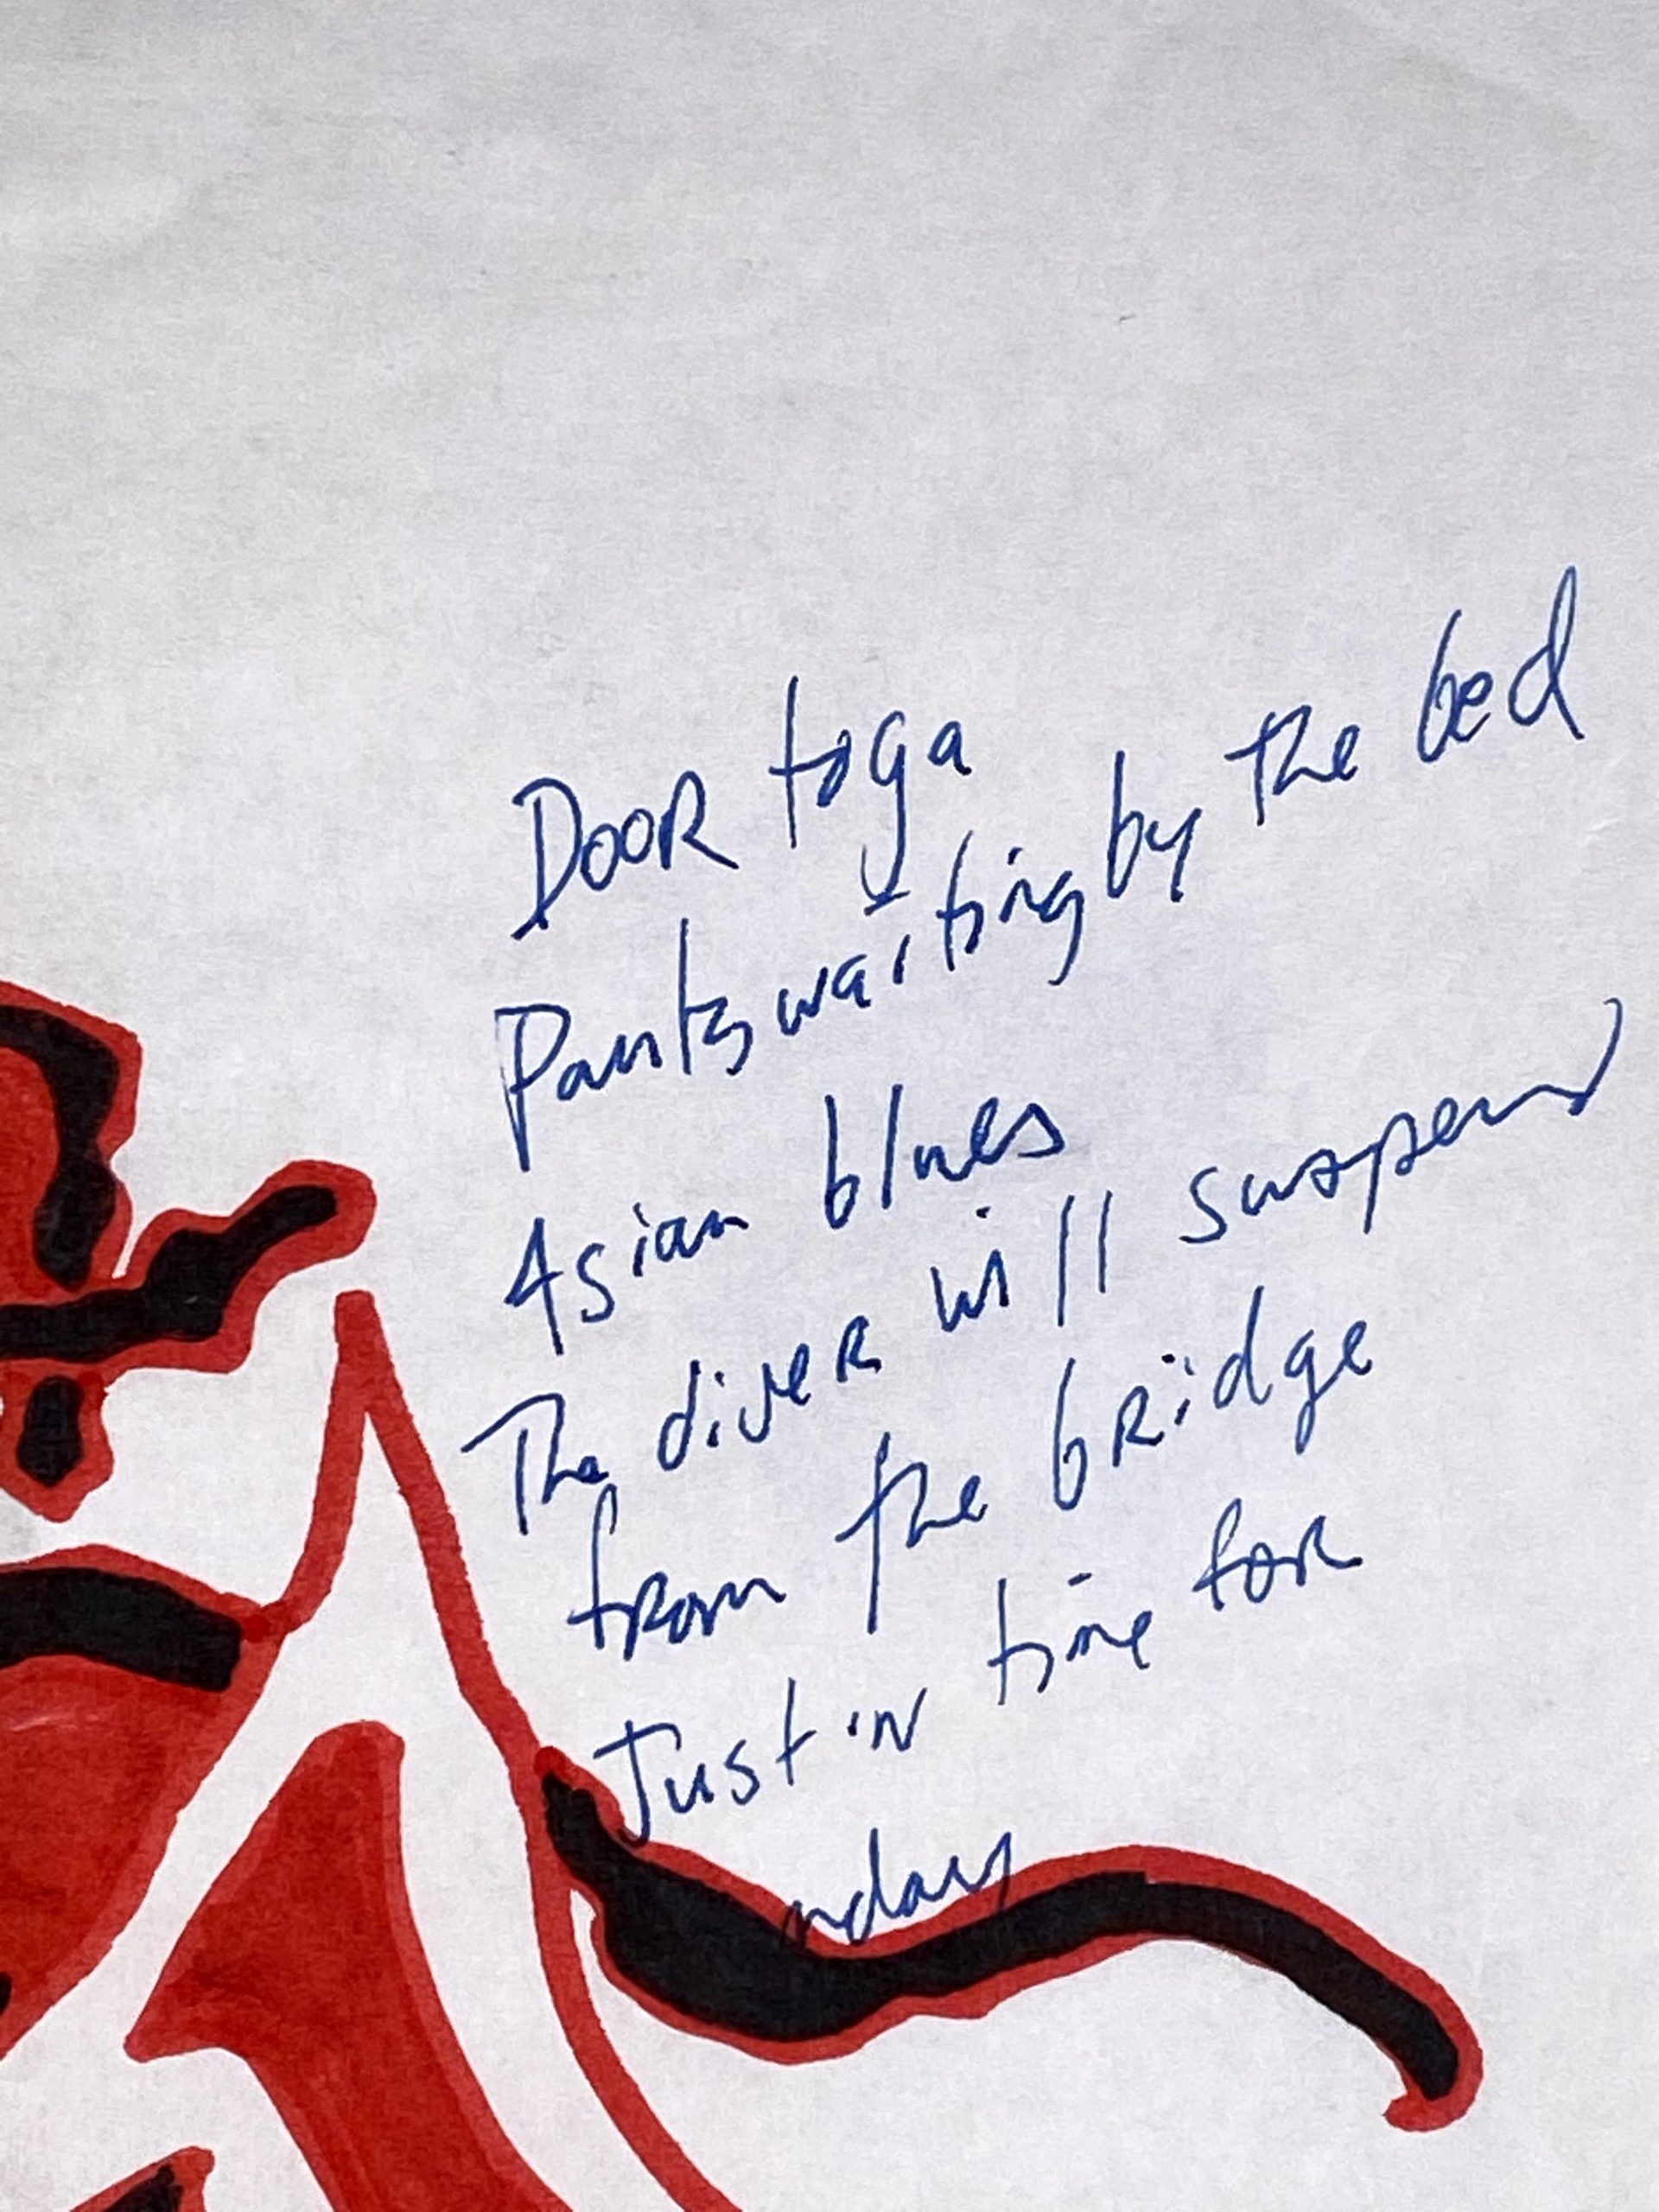 Door toga
Pants waiting by the bed
Asian blues
The diver will suspend
from the bridge
Just in time for